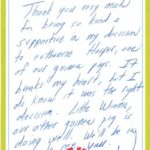 Thank you very much
for being so kind &
supportive in my decision
to euthanize Harper, one
of our guinea pigs. It
breaks my heart, but I
do know it was the right
decision. Little Winnie,
our other guinea pig is
doing well. We'll be in
to see you